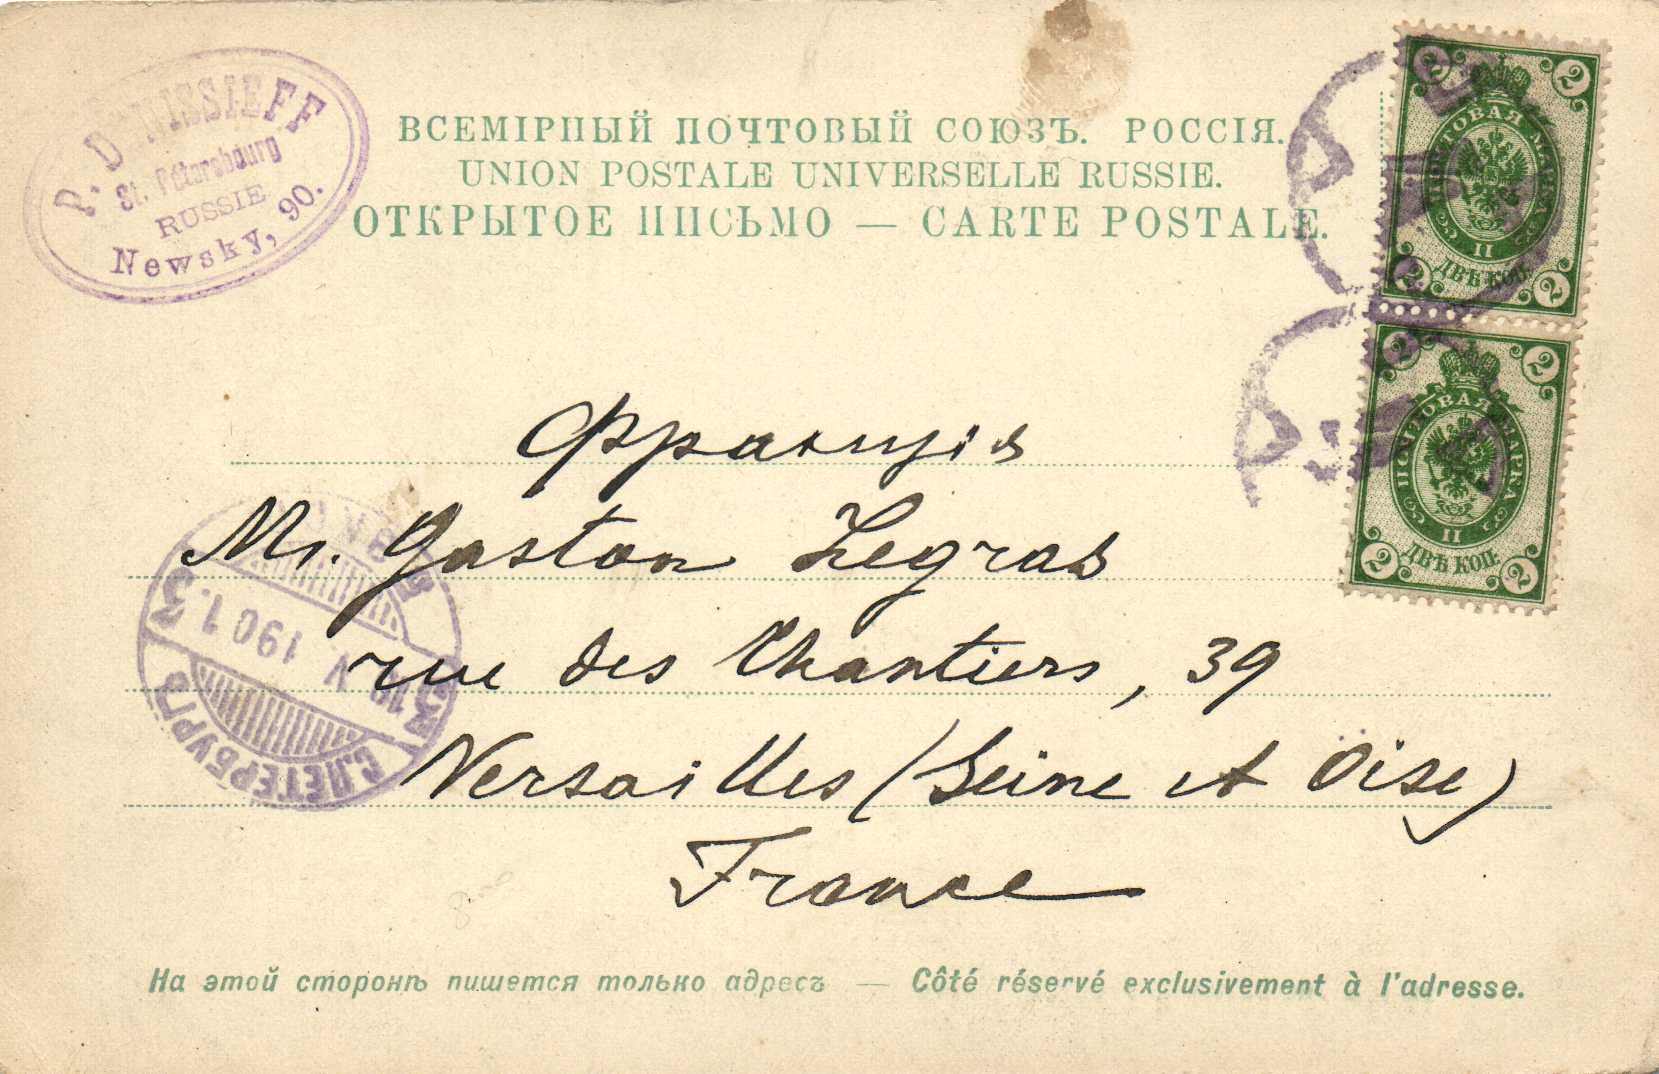 P. DENISSIEFF
St. Pétersbourg
RUSSIE
Newsky, 90.
ВСЕМІРНЫЙ ПОЧТОВЫЙ СОЮЗЪ. РОССІЯ.
UNION POSTALE UNIVERSELLE RUSSIE.
ОТКРЫТОЕ ПИСЬМО — CARTE POSTALE.
ПОЧТОВАЯ МАРКА
2 2
II
ДВѢ КОП.
2 2
2 2
ПОЧТОВАЯ МАРКА
II
ДВѢ КОП.
2 2
Франція
Mr. Gaston Legras
rue des Chantiers, 39
Versailles (Seine et Oise)
France
V 1901.
С.ПЕТЕРБУРГЪ
На этой сторонѣ пишется только адресъ — Côté réservé exclusivement à l'adresse.